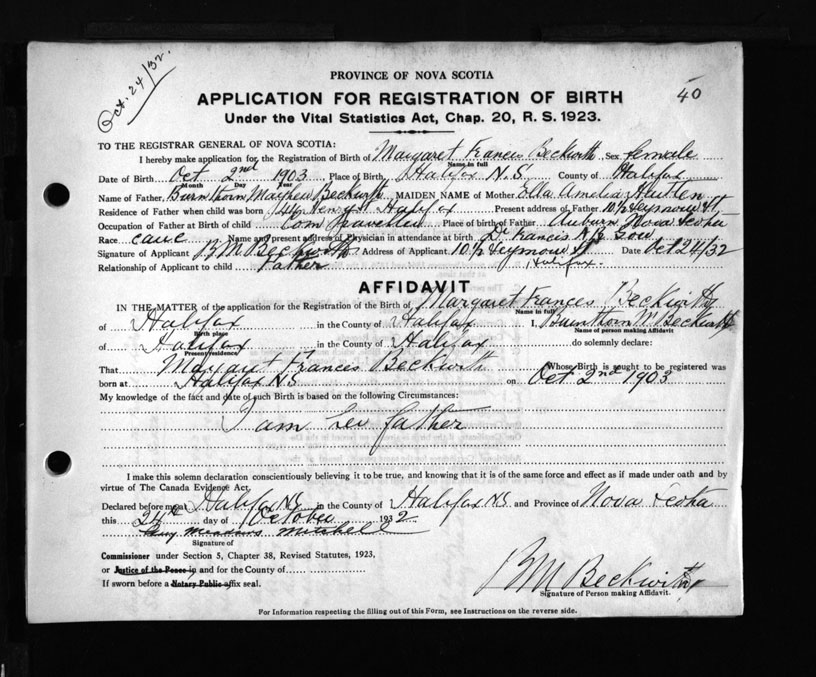 Oct. 24/32.
40
PROVINCE OF NOVA SCOTIA
APPLICATION FOR REGISTRATION OF BIRTH
Under the Vital Statistics Act, Chap. 20, R. S. 1923.
TO THE REGISTRAR GENERAL OF NOVA SCOTIA:
I hereby make application for the Registration of Birth of Margaret Frances Beckwith Sex female
Name in full
Date of Birth Oct 2nd 1903 Place of Birth Halifax N.S. County of Halifax
Month Day Year
Name of Father Burnthorn Mayhew Beckwith MAIDEN NAME of Mother Ella Amelia
Residence of Father when child was born Henry St Halifax Present address of Father 10½ Seymour St
Occupation of Father at Birth of child Com Traveller Place of birth of Father Auburn Nova Scotia
Race cauc Name and present address of Physician in attendance at birth Dr Francis
Signature of Applicant B M Beckwith Address of Applicant 10½ Seymour St Date Oct 24/32
Relationship of Applicant to child Father Halifax.
AFFIDAVIT
IN THE MATTER of the application for the Registration of the Birth of Margaret Frances Beckwith
Name in full
of Halifax in the County of Halifax I, Burnthorn M Beckwith
Birth place Name of person making affidavit
of Halifax in the County of Halifax do solemnly declare:
Present residence
That Margaret Frances Beckwith Whose Birth is sought to be registered was
born at Halifax N.S on Oct 2nd 1903
My knowledge of the fact and date of such Birth is based on the following Circumstances:
I am her father
I make this solemn declaration conscientiously believing it to be true, and knowing that it is of the same force and effect as if made under oath and by
virtue of The Canada Evidence Act.
Declared before me at Halifax NS in the County of Halifax NS and Province of Nova Scotia
this 24th day of October 1932
Meadows Mitchell
Signature of
Commissioner under Section 5, Chapter 38, Revised Statutes, 1923,
or Justice of the Peace in and for the County of
If sworn before a Notary Public affix seal.
BM Beckwith
Signature of Person making Affidavit.
For Information respecting the filling out of this Form, see Instructions on the reverse side.